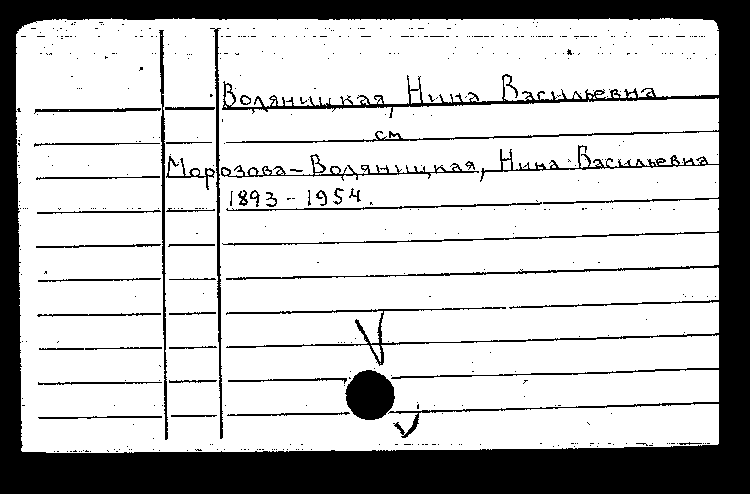 Водяницкая, Нина Васильевна
см
Морозова-Водяницкая, Нина Васильевна
1893-1954.